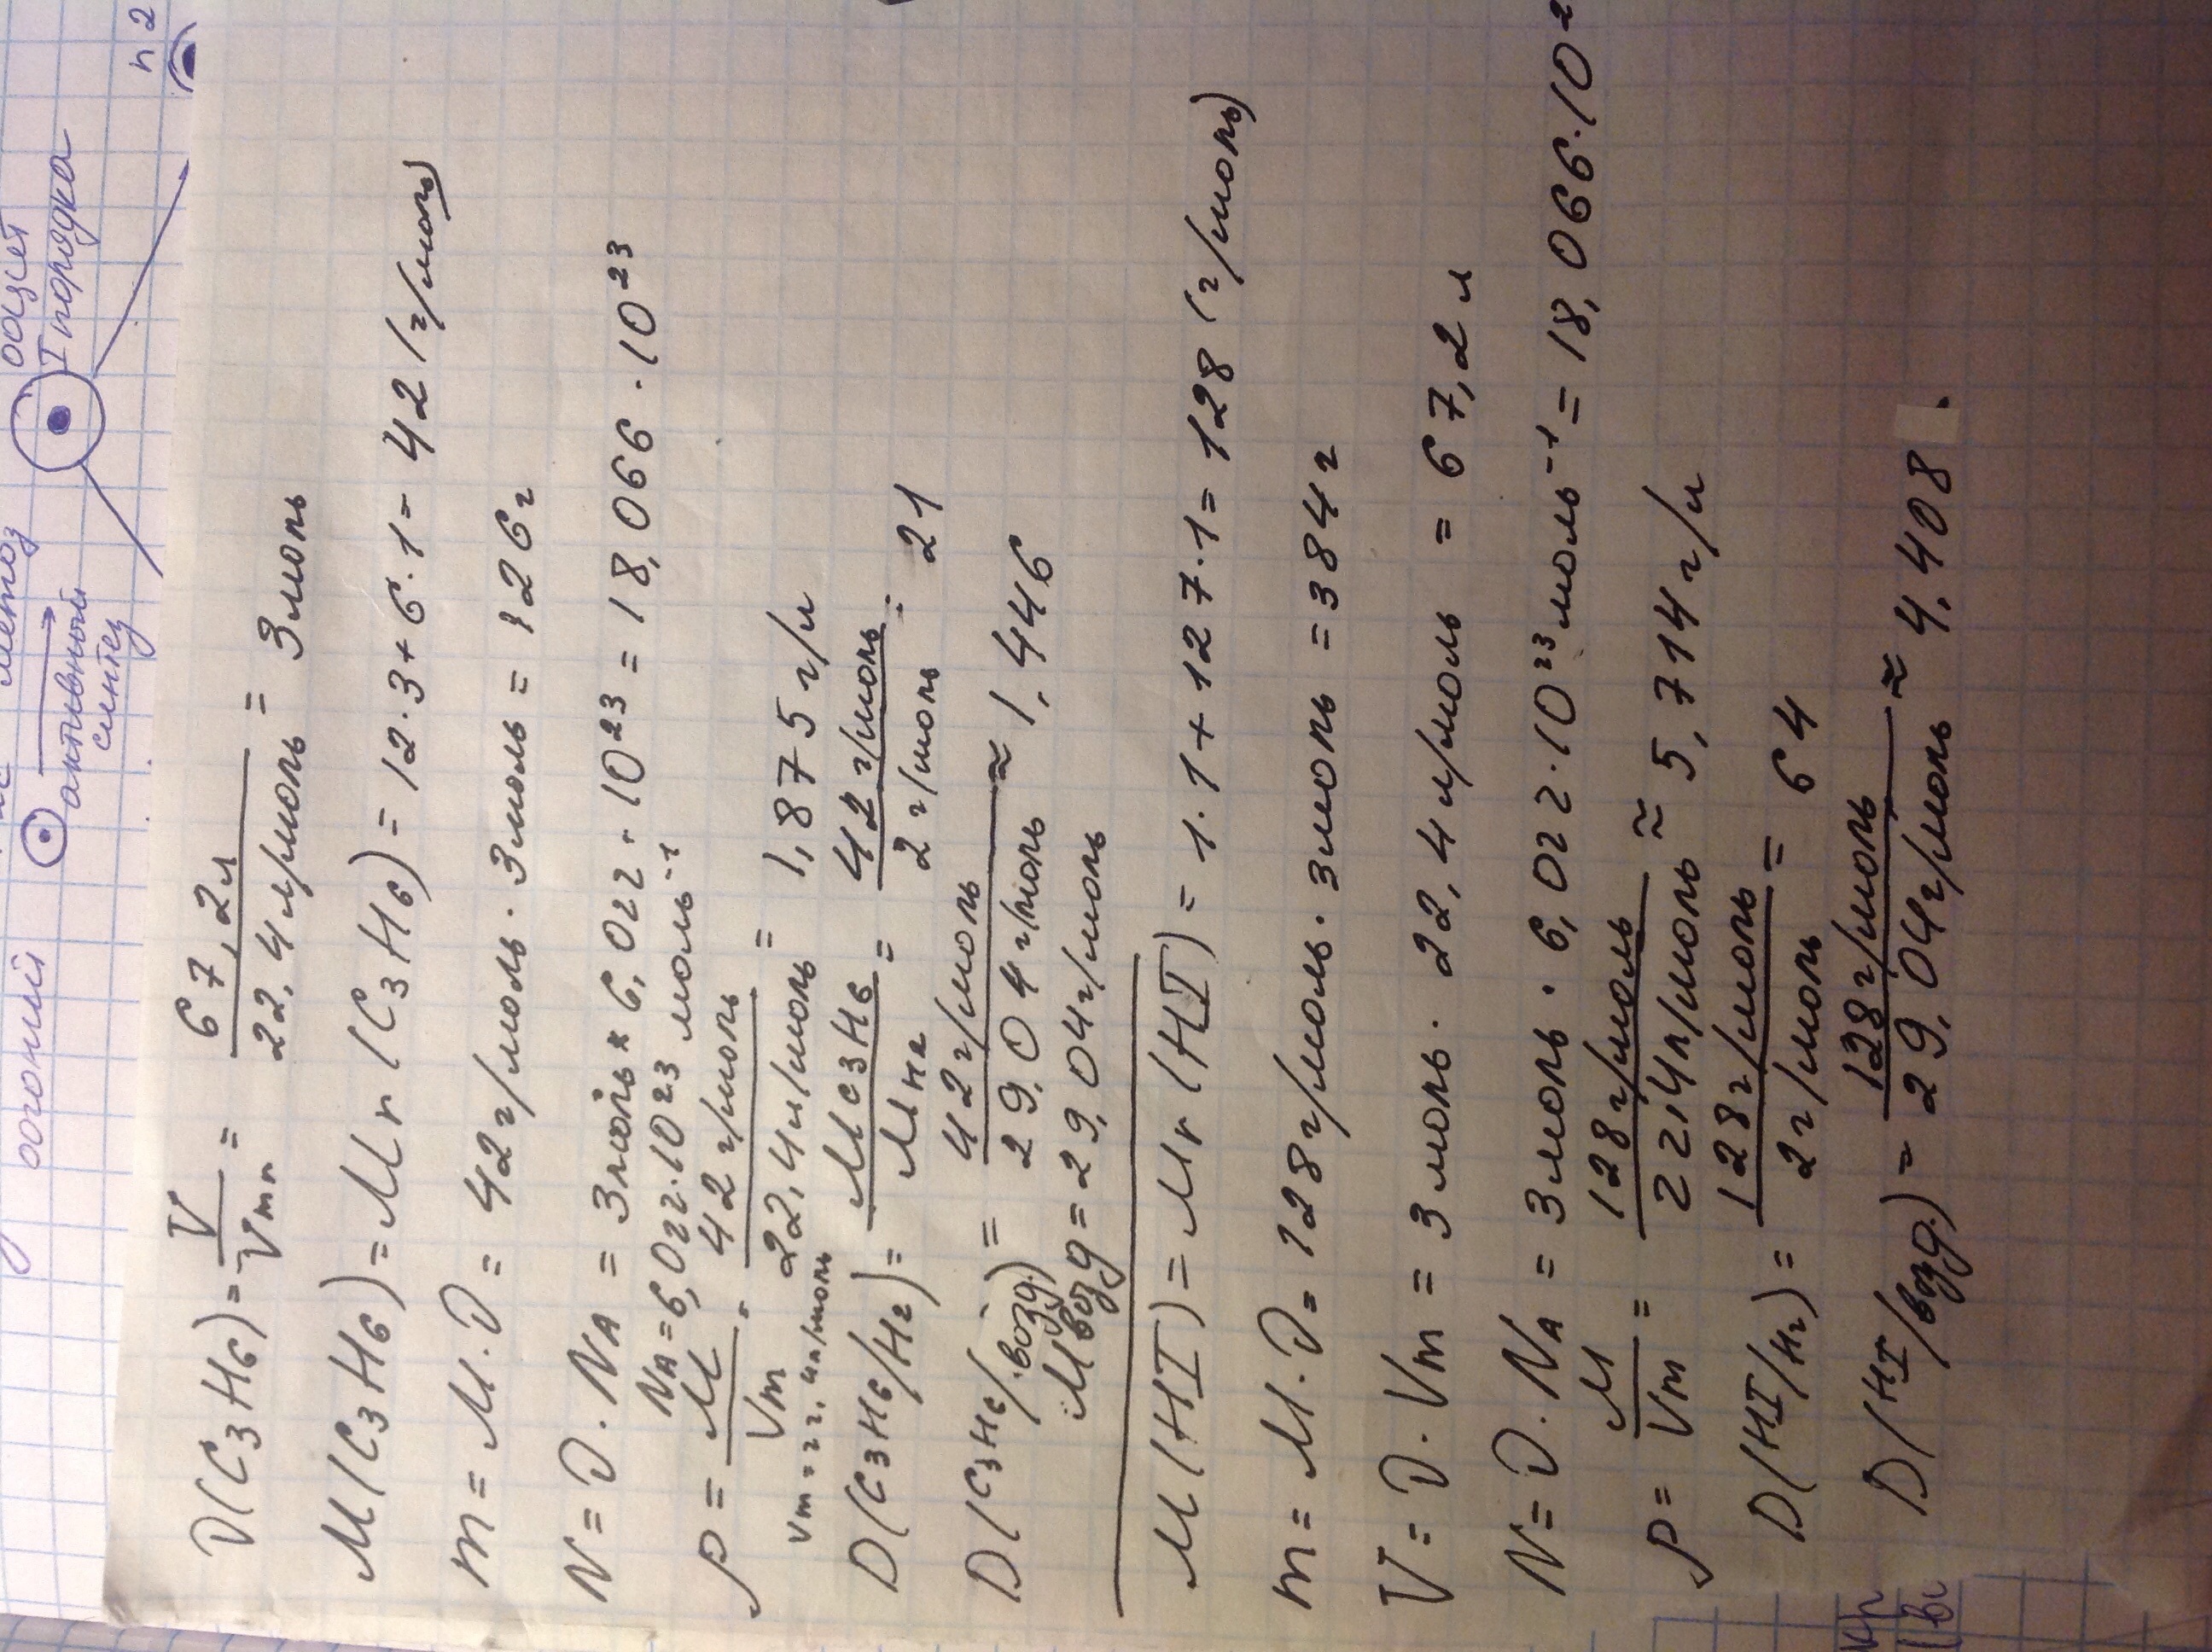 ν(C₃H₆) = V/Vm = 67,2л/22,4л/моль = 3моль
M(C₃H₆) = Mr(C₃H₆) = 12·3+6·1= 42 (г/моль)
m = M·ν = 42г/моль·3моль = 126г
N = ν·NA = 3моль*6,022·10²³ = 18,066·10²³
NA = 6,022·10²³ моль⁻¹
ρ = M/Vm = 42г/моль/22,4л/моль = 1,875 г/л
D(C₃H₆/H₂) = MC₃H₆/MH₂ = 42г/моль/2г/моль = 21
D(C₃H₆/возд.) = 42г/моль/29,04г/моль ≈ 1,446
Mвозд = 29,04г/моль
M(HI) = Mr(HI) = 1·1+127·1= 128 (г/моль)
m = M·ν = 128г/моль·3моль = 384г
V = ν·Vm = 3моль·22,4л/моль = 67,2л
N = ν·NA = 3моль·6,022·10²³моль⁻¹ = 18,066·10²
ρ = M/Vm = 128г/моль/22,4л/моль ≈ 5,714г/л
D(HI/H₂) = 128г/моль/2г/моль = 64
D(HI/возд.) = 128г/моль/29,04г/моль ≈ 4,408.
I порядка
активный
синтез
n 2